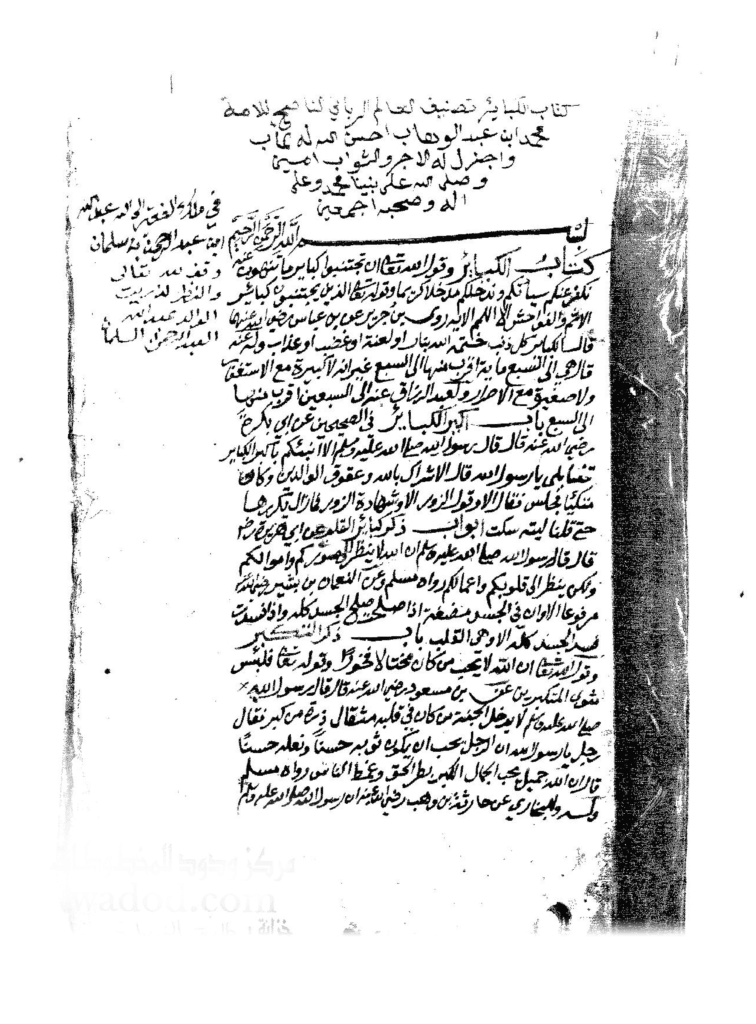 كتاب الكبائر تصنيف العالم الرباني الناصح للامة
محمد ابن عبد الوهاب احسن الله له المآب
واجزل له الاجر والثواب امين
وصلى الله على نبينا محمد وعلى
اله وصحبه اجمعين
في ملك الفقير الى الله عبد الله
ابن عبد الرحمن بن سلمان
وقف لله تعالى
والنظر لذريت
الوالد عبد الله
العبد الرحمن السلمان
بسم الله الرحمن الرحيم
كتاب الكبائر وقول الله تعالى ان تجتنبوا كبائر ما تنهون عنه
نكفر عنكم سيأتكم وندخلكم مدخلا كريما وقوله تعالى الذين يجتنبون كبائر
الاثم والفواحش الا اللمم الاية روى بن جرير عن بن عباس رضي الله عنهما
قال الكبائر كل ذنب ختمه الله بنار او لعنة او غضب او عذاب وله عنه
قال هي الى السبع ماية اقرب منها الى السبع غير انه لا كبيرة مع الاستغفار
ولا صغيرة مع الاصرار ولعبد الرزاق عنه الى السبعين اقرب منها
الى السبع باب اكبر الكبائر في الصحيحين عن ابي بكرة
رضي الله عنه قال قال رسول الله صلى الله عليه وسلم الا انبئكم باكبر الكبائر
قلنا بلى يا رسول الله قال الاشراك بالله وعقوق الوالدين وكان
متكيا فجلس فقال الا وقول الزور الا وشهادة الزور فما زال يكررها
حتى قلنا ليته سكت ابواب ذكر كبائر القلب عن ابي هريرة رضي
قال قال رسول الله صلى الله عليه وسلم ان الله لا ينظر الى صوركم واموالكم
ولكن ينظر الى قلوبكم واعمالكم رواه مسلم وعن النعمان بن بشير رضي الله عنه
مرفوعا الا وان في الجسد مضغة اذا صلحت صلح الجسد كله واذا فسدت
فسد الجسد كله الا وهي القلب باب ذكر التكبر
وقول الله تعالى ان الله لا يحب من كان مختالا فخورا وقوله تعالى فلبئس
مثوى المتكبرين عن بن مسعود رضي الله عنه قال قال رسول الله
صلى الله عليه وسلم لا يدخل الجنة من كان في قلبه مثقال ذرة من كبر فقال
رجل يا رسول الله ان الرجل يحب ان يكون ثوبه حسنا ونعله حسنا
قال ان الله جميل يحب الجمال الكبر بطر الحق وغمط الناس رواه مسلم
وللبخاري عن حارثة بن وهب رضي الله عنه ان رسول الله صلى الله عليه وسلم